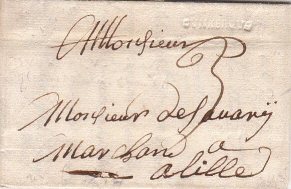 A Monsieur
3
Monsieur De Savarÿ
Marchand
a
a lille